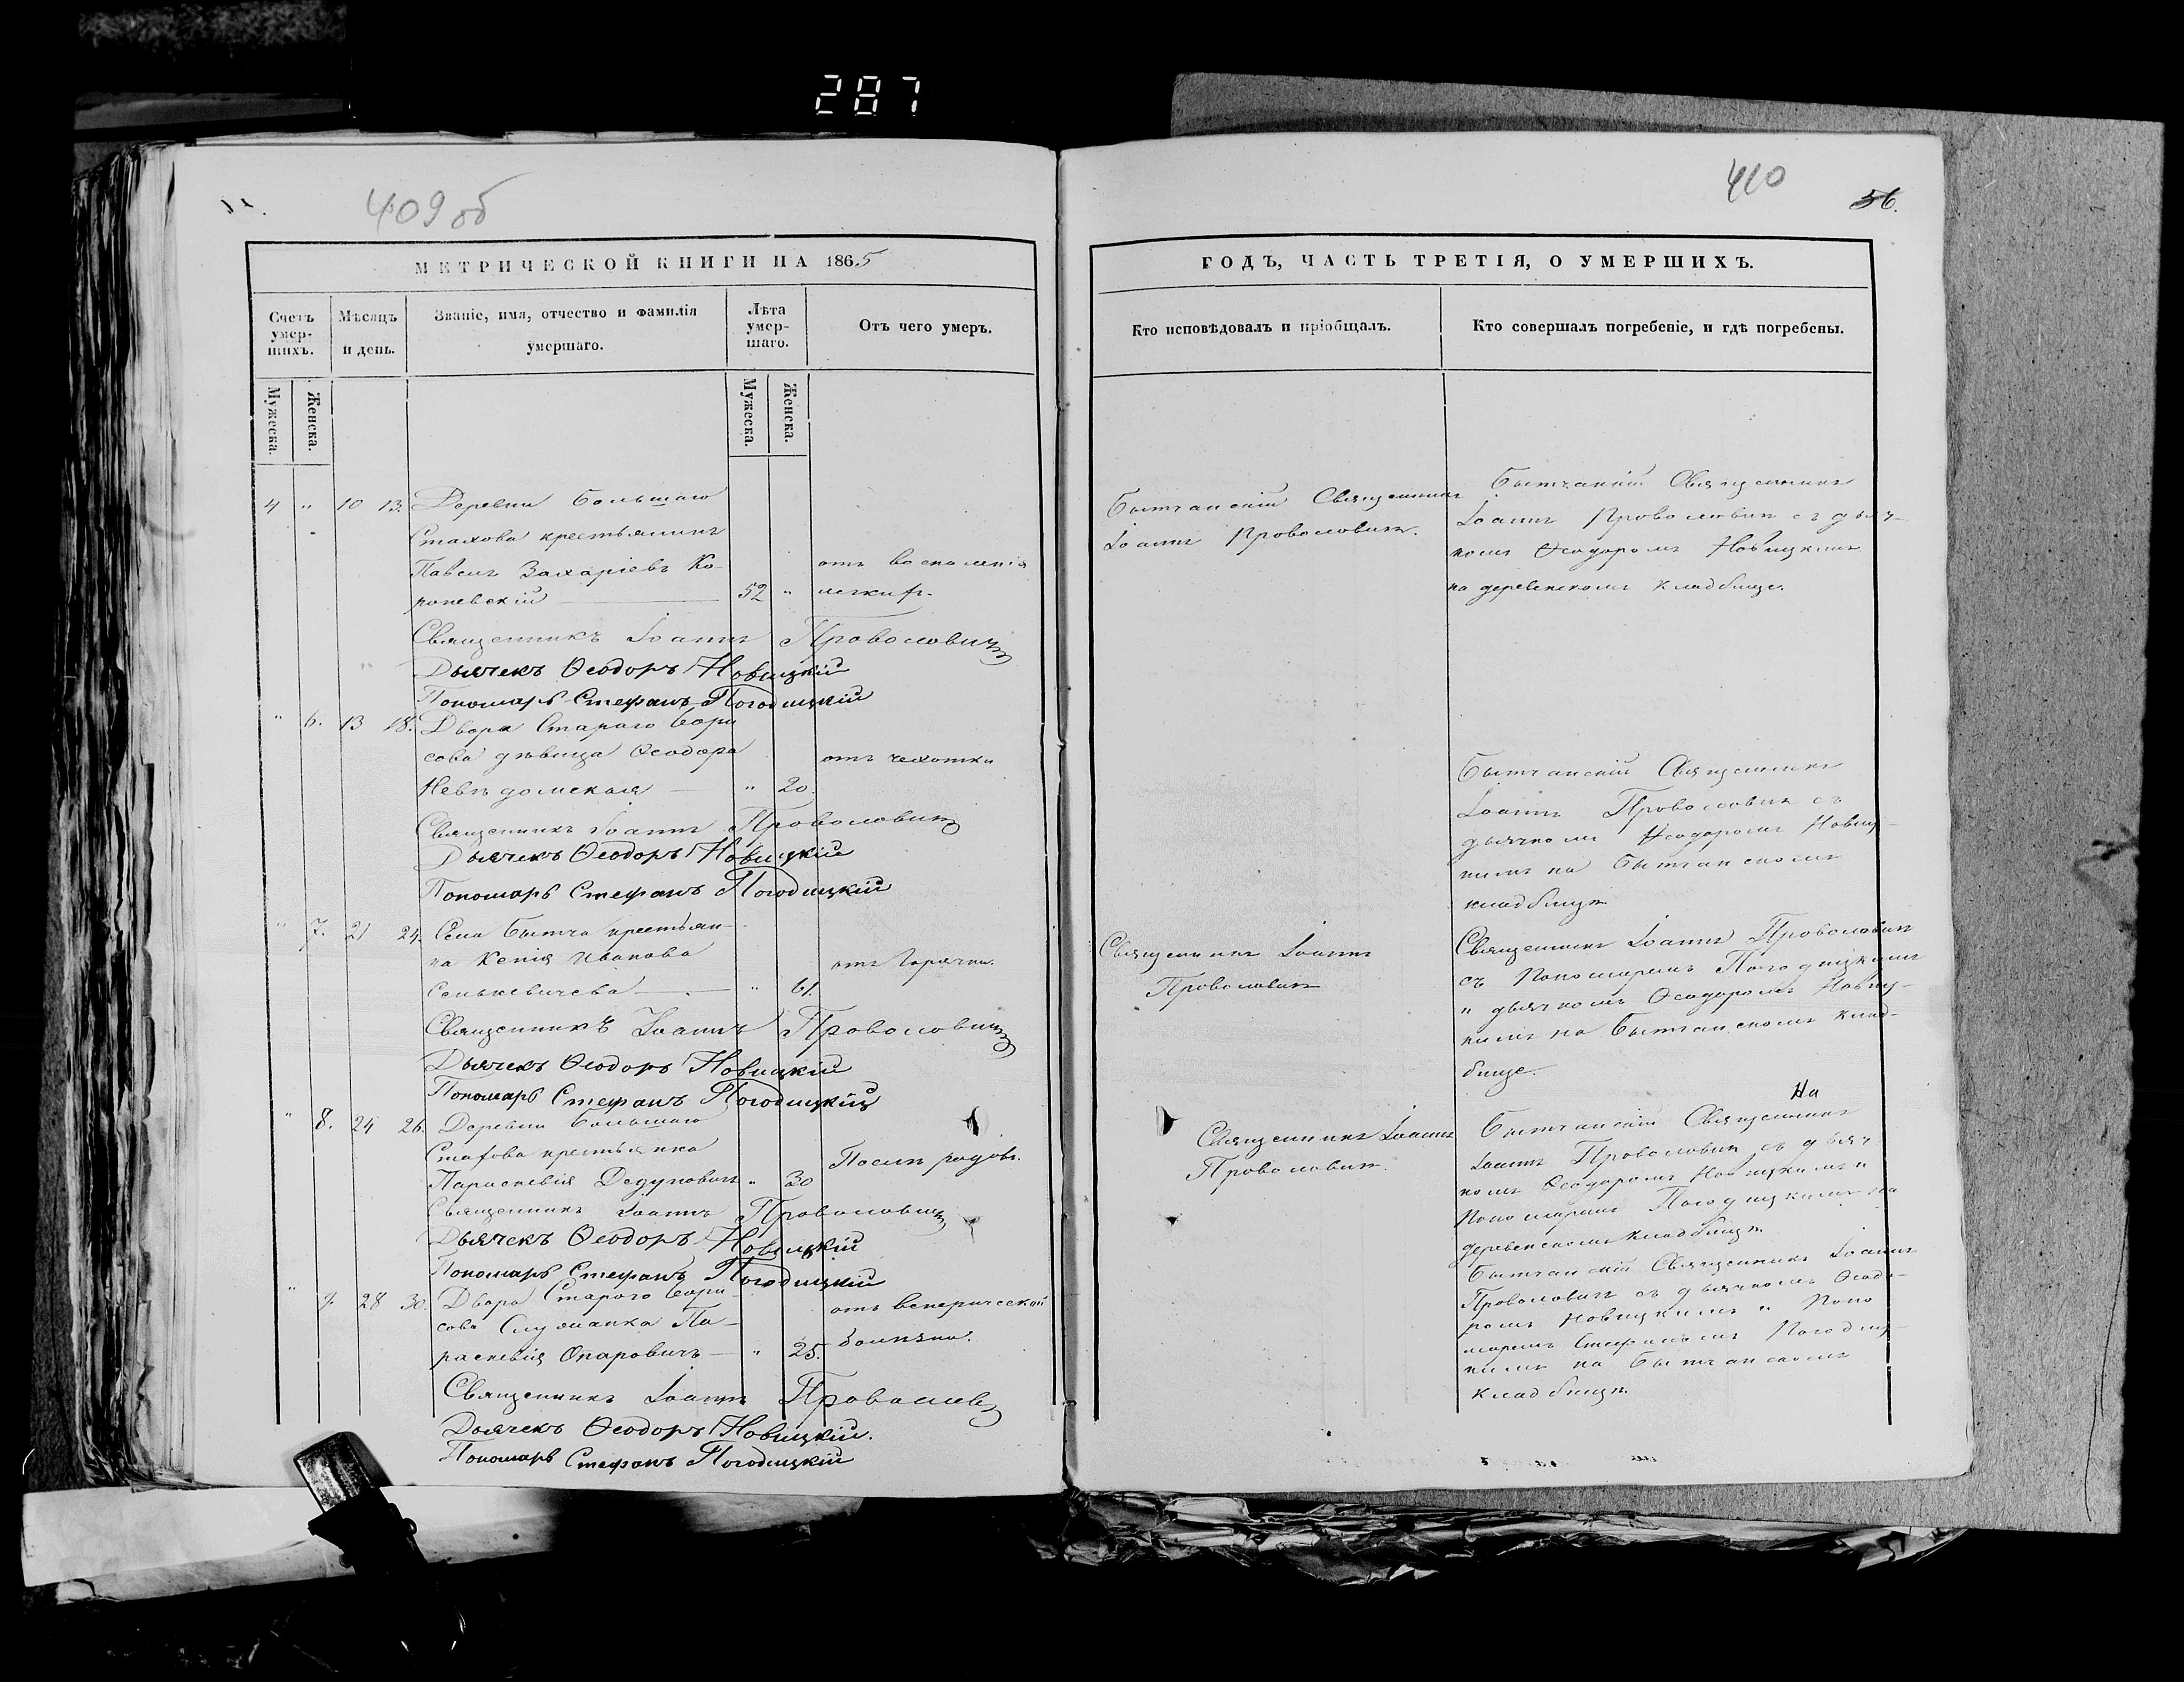 287
409 об
МЕТРИЧЕСКОЙ КНИГИ НА 1865
Счетъ умер-шихъ.
Мѣсяцъ и день.
Званіе, имя, отчество и фамилія умершаго.
Лѣта умер-шаго.
Отъ чего умеръ.
Мужеска.
Женска.
Мужеска.
Женска.
4 " 10 13. Деревни Большаго
Стахова крестьянинъ
Павелъ Захаріевъ Ко- отъ воспаленія
роневскій 52 " легкихъ.
Священникъ Іоаннъ Проволовичъ
Дьячекъ Ѳеодоръ Новицкій
Пономарь Стефанъ Погодицкій
" 6. 13 18. Двора Стараго Бори
сова дѣвица Ѳеодора отъ чахотки
Невѣдомская " 20.
Священникъ Іоаннъ Проволовичъ
Дьячекъ Ѳеодоръ Новицкій
Пономарь Стефанъ Погодицкій
" 7. 21 24. Села Бытча крестьян-
ка Ксенія Иванова отъ Горячки.
Сенькевичева " 61.
Священникъ Іоаннъ Проволовичъ
Дьячекъ Ѳеодоръ Новицкій
Пономарь Стефанъ Погодицкій
" 8. 24 26. Деревни Большаго
Стахова крестьянка Послѣ родовъ.
Параскевія Дедуновичъ " 30
Священникъ Іоаннъ Проволовичъ
Дьячекъ Ѳеодоръ Новицкій
Пономарь Стефанъ Погодицкій
" 9. 28 30. Двора Стараго Бори отъ венерической
сова Служанка Па-
раскевія Опаровичъ " 25. болѣзни.
Священникъ Іоаннъ
Дьячекъ Ѳеодоръ Новицкій.
Пономарь Стефанъ Погодицкій
410
56.
ГОДЪ, ЧАСТЬ ТРЕТІЯ, О УМЕРШИХЪ.
Кто исповѣдовалъ и пріобщалъ.
Кто совершалъ погребеніе, и гдѣ погребены.
Бытчанскій Священникъ
Іоаннъ Проволовичъ.
Бытчанскій Священникъ
Іоаннъ Проволовичъ съ дьяч-
комъ Ѳеодоромъ Новицкимъ
на деревенскомъ кладбище.
Бытчанскій Священникъ
Іоаннъ Проволовичъ съ
дьячкомъ Ѳеодоромъ Новиц-
кимъ на Бытчанскомъ
кладбищѣ
Священникъ Іоаннъ
Проволовичъ
Священникъ Іоаннъ Проволовичъ
съ Пономаремъ Погодицкимъ
и дьячкомъ Ѳеодоромъ Новиц-
кимъ на Бытчанскомъ клад-
бище.
Священникъ Іоаннъ
Проволовичъ.
На
Бытчанскій Священникъ
Іоаннъ Проволовичъ съ дьяч
комъ Ѳеодоромъ Новицкимъ и
Пономаремъ Погодицкимъ на
деревенскомъ кладбищѣ
Бытчанскій Священникъ Іоаннъ
Проволовичъ съ дьячкомъ Ѳеодо-
ромъ Новицкимъ и Поно
маремъ Стефаномъ Погодиц-
кимъ на Бытчанскомъ
кладбищѣ.